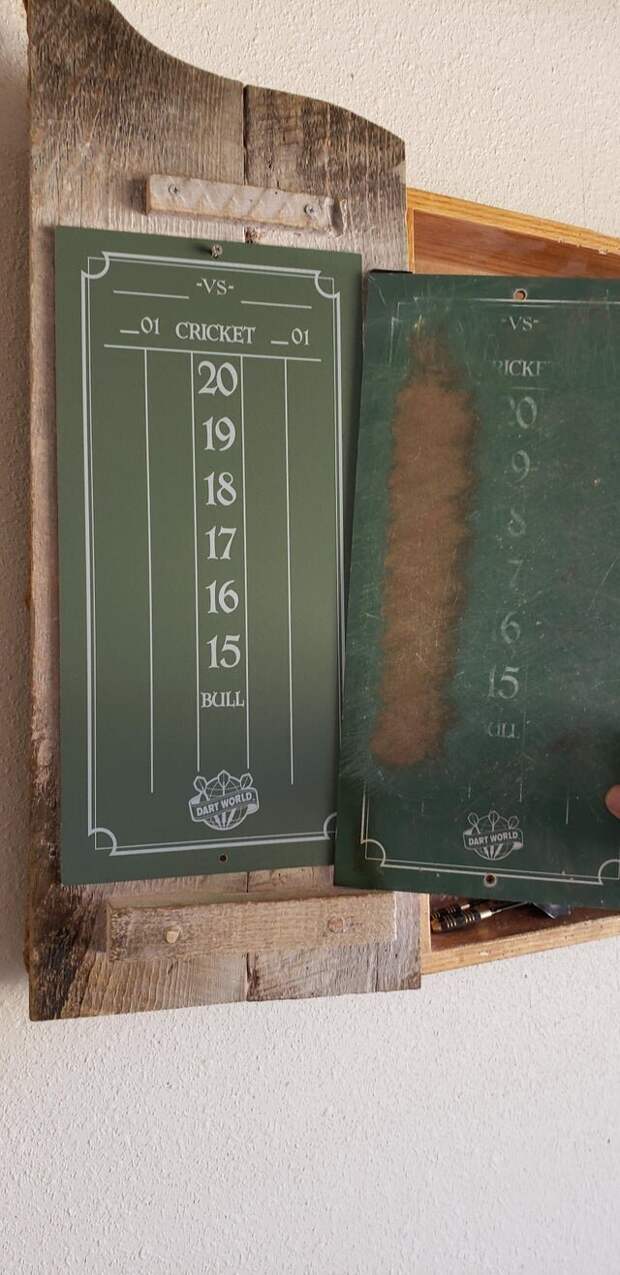 -VS-
_01 CRICKET _01
20
19
18
17
16
15
BULL
DART WORLD
-VS-
RICKE
20
9
8
7
6
15
ULL
DART WORLD